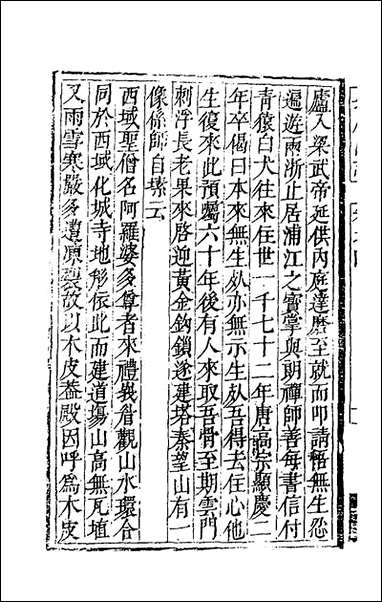 廬入梁武帝延供內庭達磨至就而叩請悟無生忍
遍遊兩浙止居浦江之寳掌與朗禪師善每書信付
青猿白犬往來住世一千七十二年唐高宗顯慶二
年卒偈曰本來無生死亦無示生死吾得去住心他
生復來此預屬六十年後有人來取吾骨至期雲門
刺浮長老果來啓迎黃金鈎鎖遂建塔秦望山有一
像係師自塐云
西域聖僧名阿羅婆多尊者來禮峩眉觀山水環合
同於西域化城寺地形依此而建道場山高無瓦埴
又雨雪寒嚴多遭凍裂故以木皮葢殿因呼爲木皮